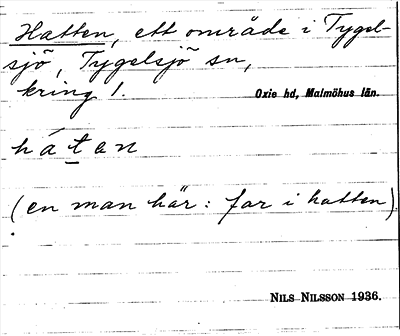 Hatten, ett område i Tygel-
sjö, Tygelsjö sn,
kring 1.
Oxie hd, Malmöhus län.
hátan
(en man här: far i hatten)
NILS NILSSON 1936.